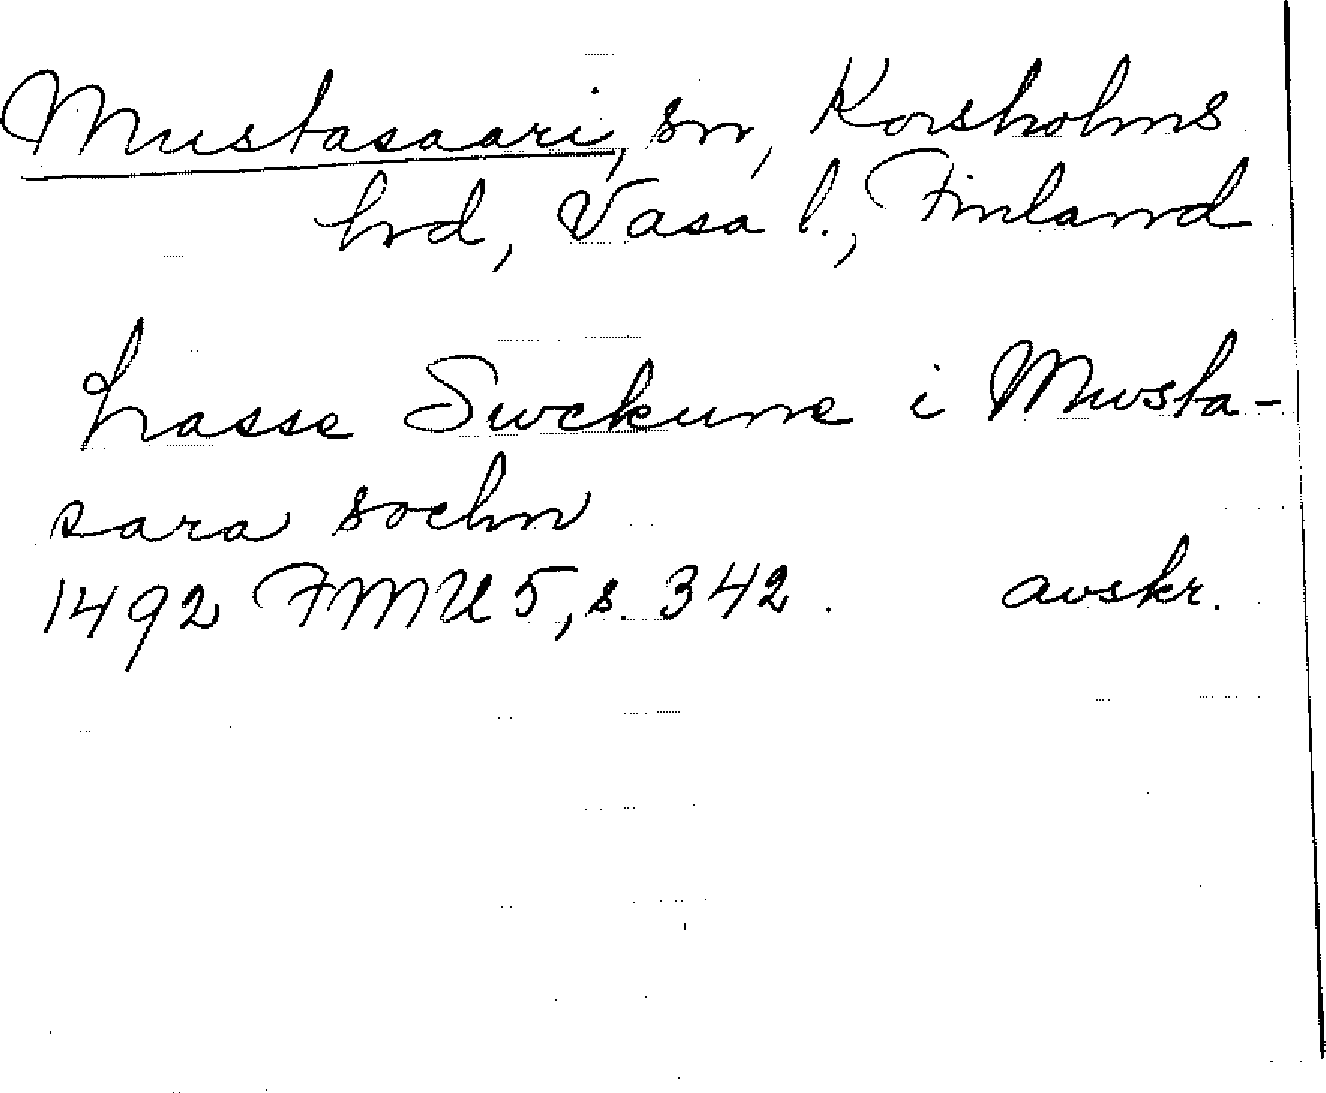 Mustasaari, sn, Korsholms
hrd, Vasa l., Finland
Lasse Swckune i Mwsta-
sara sochn
1492 FMU 5, s. 342. avskr.